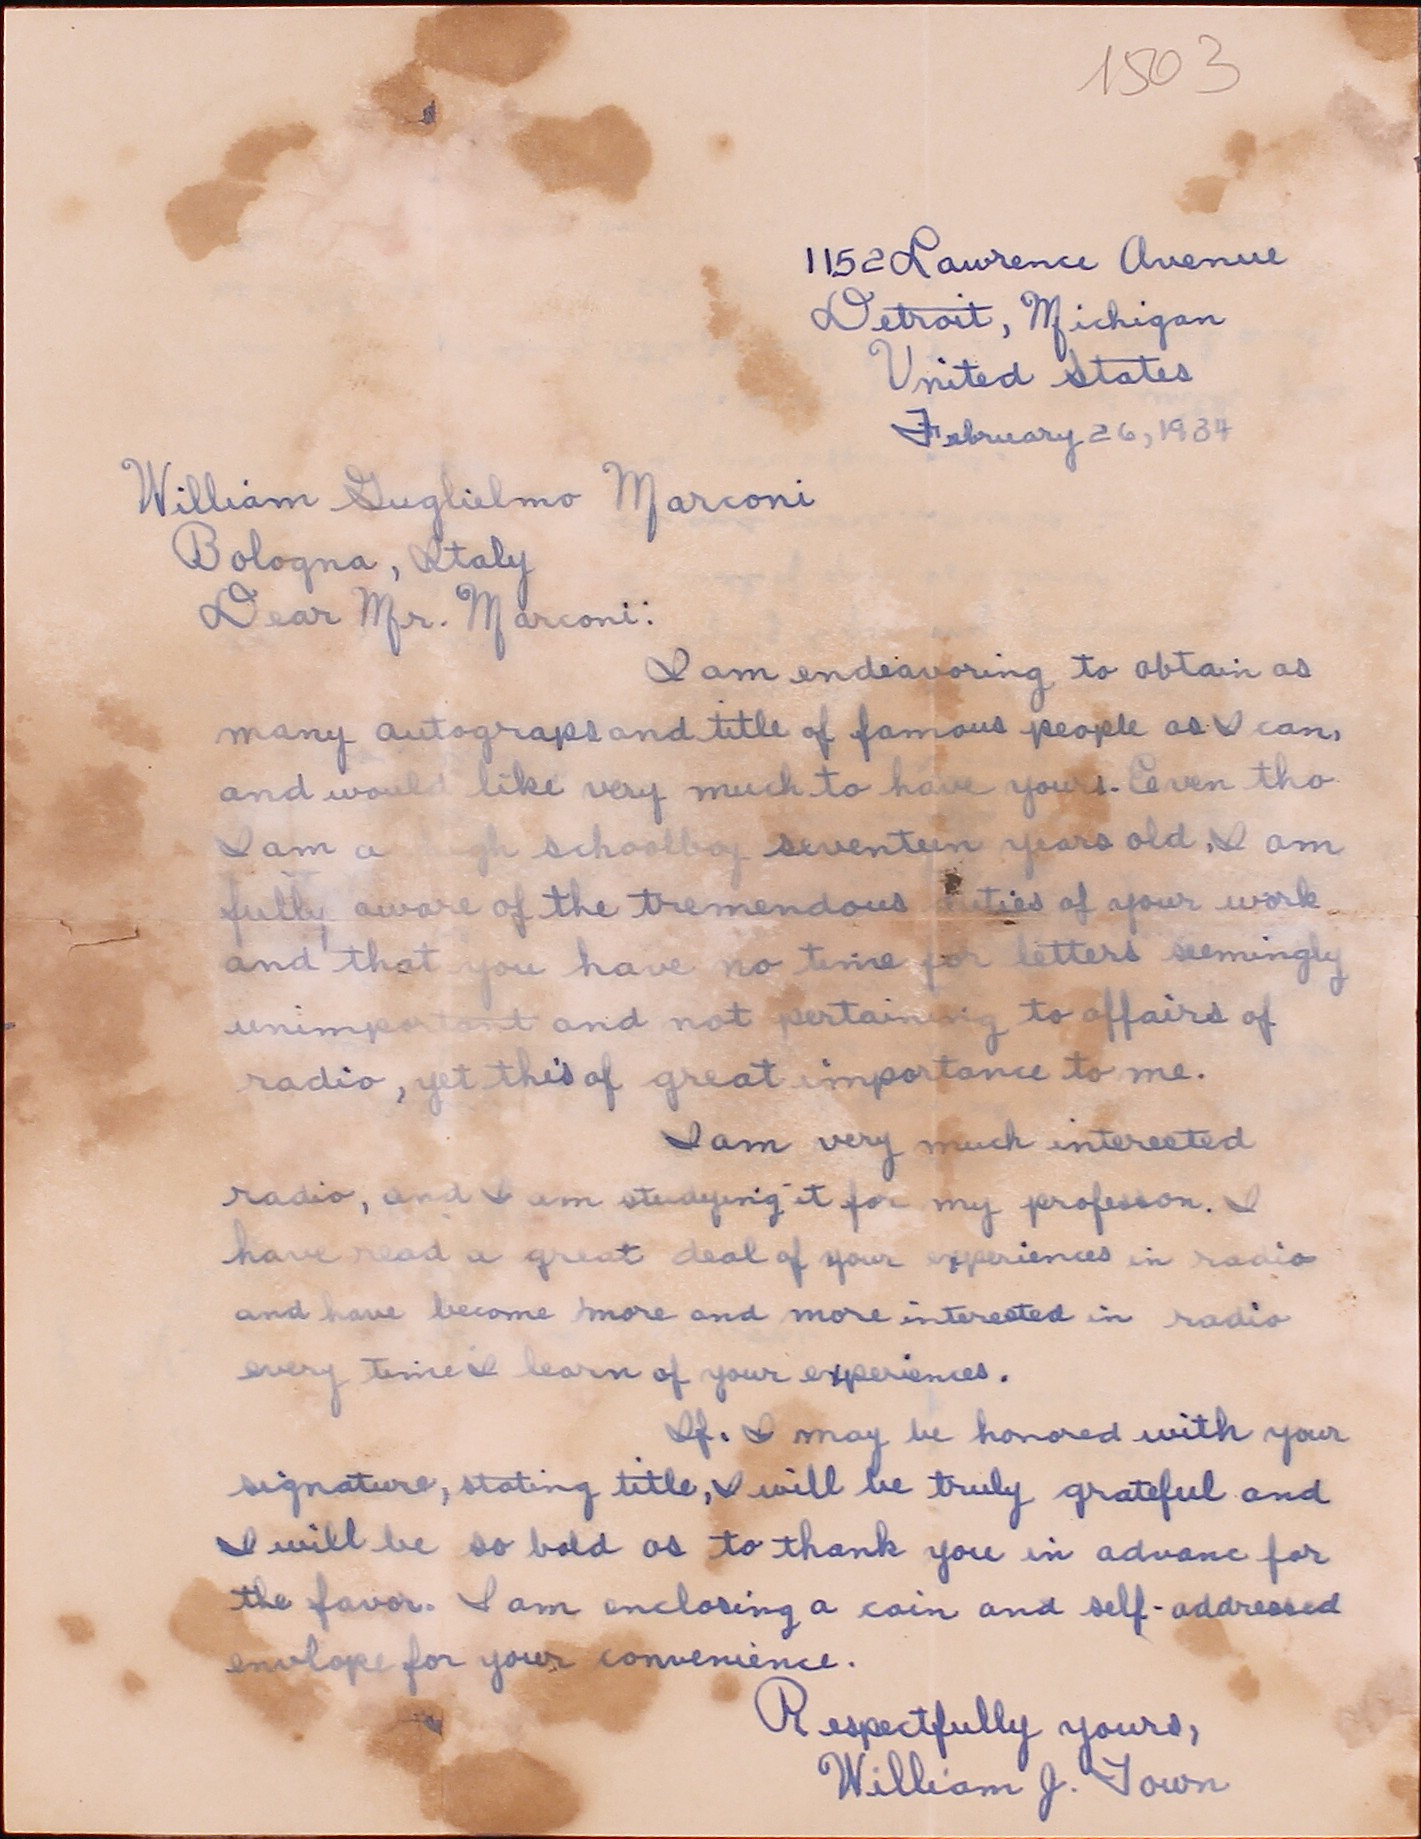 1503
1152 Lawrence Avenue
Detroit, Michigan
United States
February 26, 1934
William Guglielmo Marconi
Bologna, Italy
Dear Mr. Marconi:
I am endeavoring to obtain as
many autograps and title of famous people as I can,
and would like very much to have yours. Eeven tho
I am a high schoolboy seventeen years old, I am
fully aware of the tremendous duties of your work
and that you have no time for letters seemingly
unimportant and not pertaining to affairs of
radio, yet this of great importance to me.
I am very much interested
radio, and I am studying it for my professon. I
have read a great deal of your experiences in radio
and have become more and more interested in radio
every time I learn of your experiences.
If. I may be honored with your
signature, stating title, I will be truly grateful and
I will be so bold as to thank you in advanc for
the favor. I am enclosing a coin and self-addressed
envlope for your convenience.
Respectfully yours,
William J. Town